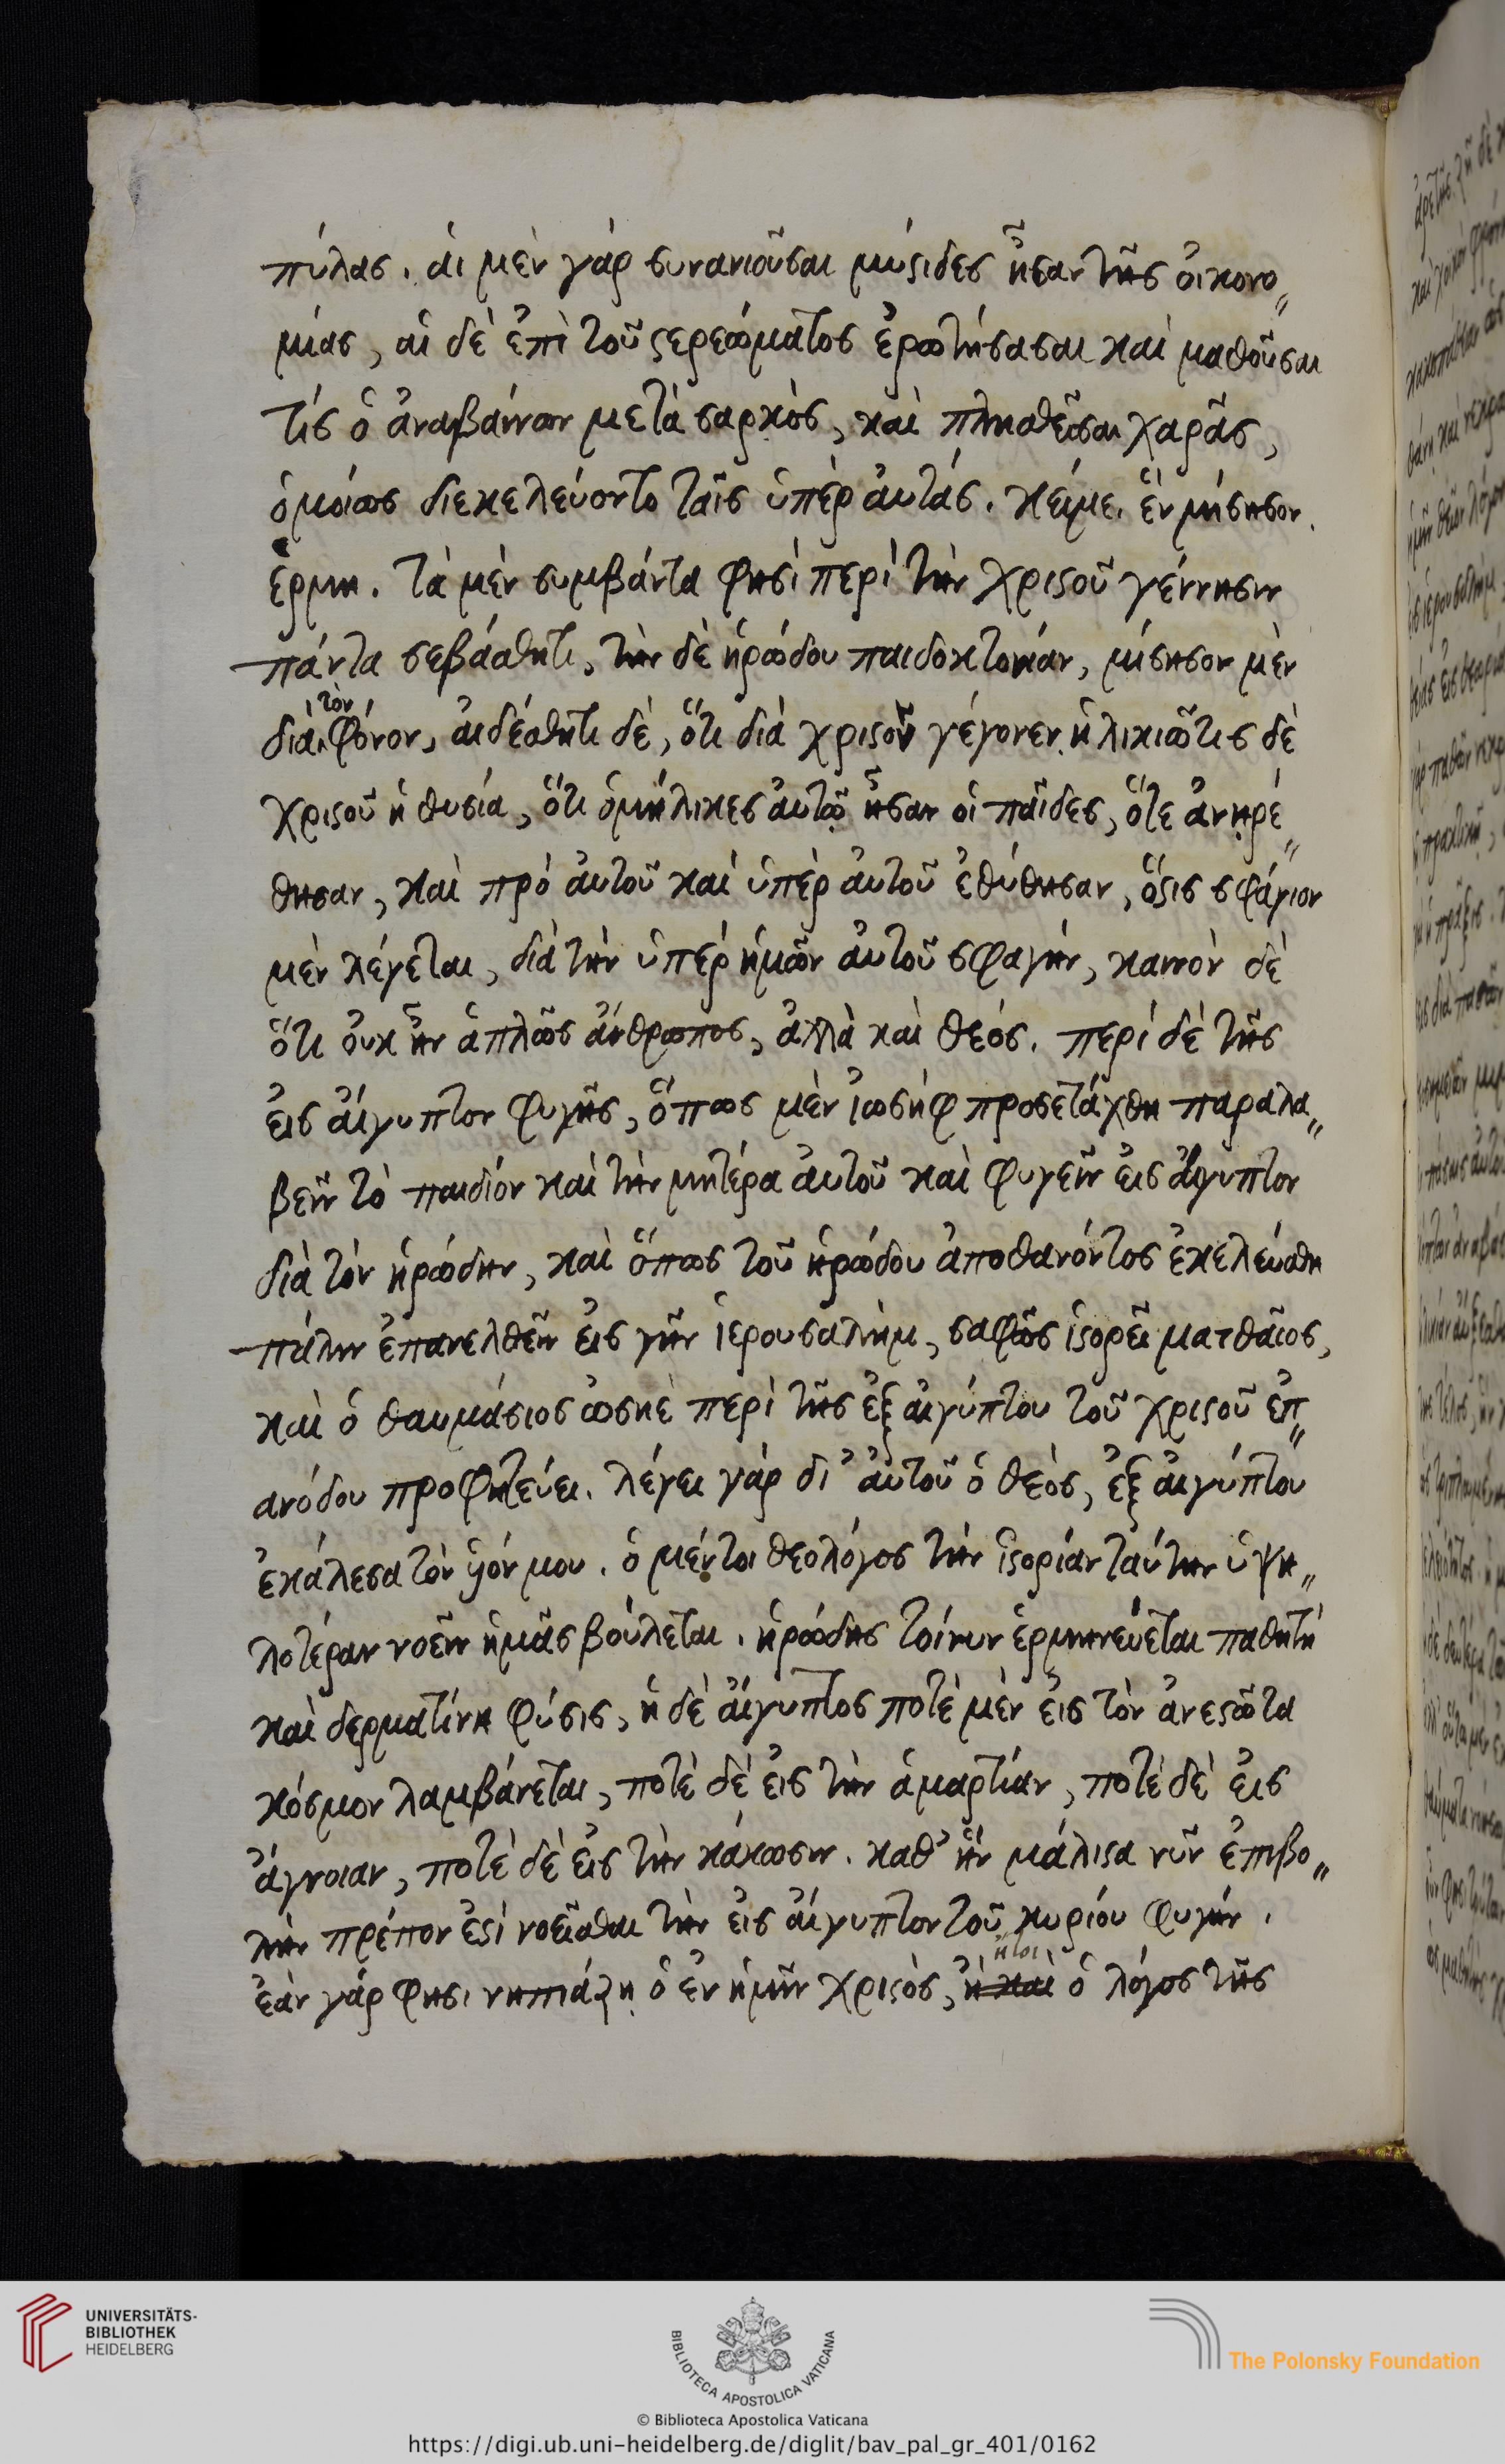 πύλας. ἁι μὲν γὰρ συνανιοῦσαι μύστιδες ἦσαν τῆς ὀικονο〃
μίας, ἁι δὲ ἐπὶ τοῦ στερεώματος ἐρωτήσασαι καὶ μαθοῦσαι
τίς ὁ ἀναβαίνων μετὰ σαρκὸς, καὶ πλησθεῖσαι χαρᾶς,
ὁμοίως διεκελεύοντο ταῖς ὑπὲρ ἀυτάς. κείμε. ἓν μίσησον.
ἑρμη. τὰ μὲν συμβάντα φησὶ περὶ τὴν χριστοῦ γέννησιν
πάντα σεβάσθητι, τὴν δὲ ἡρώδου παιδοκτονίαν, μίσησον μὲν
διὰ τὸν φόνον, ἀιδέσθητι δὲ, ὅτι διὰ χριστὸν γέγονεν. ἡλικιῶτις δὲ
χριστοῦ ἡ θυσία, ὅτι ὁμήλικες ἀυτῷ ἦσαν οἱ παῖδες, ὅτε ἀνῃρέ〃
θησαν, καὶ πρὸ ἀυτοῦ καὶ ὑπὲρ ἀυτοῦ ἐθύθησαν, ὅστις σφάγιον
μὲν λέγεται, διὰ τὴν ὑπὲρ ἡμῶν ἀυτοῦ σφαγὴν, καινὸν δὲ
ὅτι ὀυκ ἦν ἁπλῶς ἄνθρωπος, ἀλλὰ καὶ θεός. περὶ δὲ τῆς
ἐις ἄιγυπτον φυγῆς, ὅπως μὲν ἰωσὴφ προσετάχθη παραλα〃
βεῖν τὸ παιδίον καὶ τὴν μητέρα ἀυτοῦ καὶ φυγεῖν ἐις ἄιγυπτον
διὰ τὸν ἡρώδην, καὶ ὅπως τοῦ ἡρώδου ἀποθανόντος ἐκελεύσθη
πάλιν ἐπανελθεῖν ἐις γῆν ἱερουσαλὴμ, σαφῶς ἱστορεῖ ματθαῖος,
καὶ ὁ θαυμάσιος ὠσηὲ περὶ τῆς ἐξ ἀιγύπτου τοῦ χριστοῦ ἐπ〃
ανόδου προφητεύει. λέγει γὰρ δι᾽ ἀυτοῦ ὁ θεὸς, ἐξ ἀιγύπτου
ἐκάλεσα τὸν υἱόν μου. ὁ μέντοι θεολόγος τὴν ἱστορίαν ταύτην ὑψη〃
λοτέραν νοεῖν ἡμᾶς βούλεται. ἡρώδης τοίνυν ἑρμηνεύεται παθητὴ
καὶ δερματίνη φύσις, ἡ δὲ ἄιγυπτος ποτὲ μὲν ἐις τὸν ἀνεστῶτα
κόσμον λαμβάνεται, ποτὲ δὲ ἐις τὴν ἁμαρτίαν, ποτὲ δὲ ἐις
ἄγνοιαν, ποτὲ δὲ ἐις τὴν κάκωσιν. καθ᾽ ἣν μάλιστα νῦν ἐπιβο〃
λὴν πρέπον ἐστὶ νοεῖσθαι τὴν ἐις ἄιγυπτον τοῦ κυρίου φυγήν.
ἐὰν γάρ φησι νηπιάζῃ ὁ ἐν ἡμῖν χριστὸς, ἢ καὶ ἤτοι ὁ λόγος τῆς
UNIVERSITÄTS-
BIBLIOTHEK
HEIDELBERG
BIBLIOTECA APOSTOLICA VATICANA
The Polonsky Foundation
© Biblioteca Apostolica Vaticana
https://digi.ub.uni-heidelberg.de/diglit/bav_pal_gr_401/0162